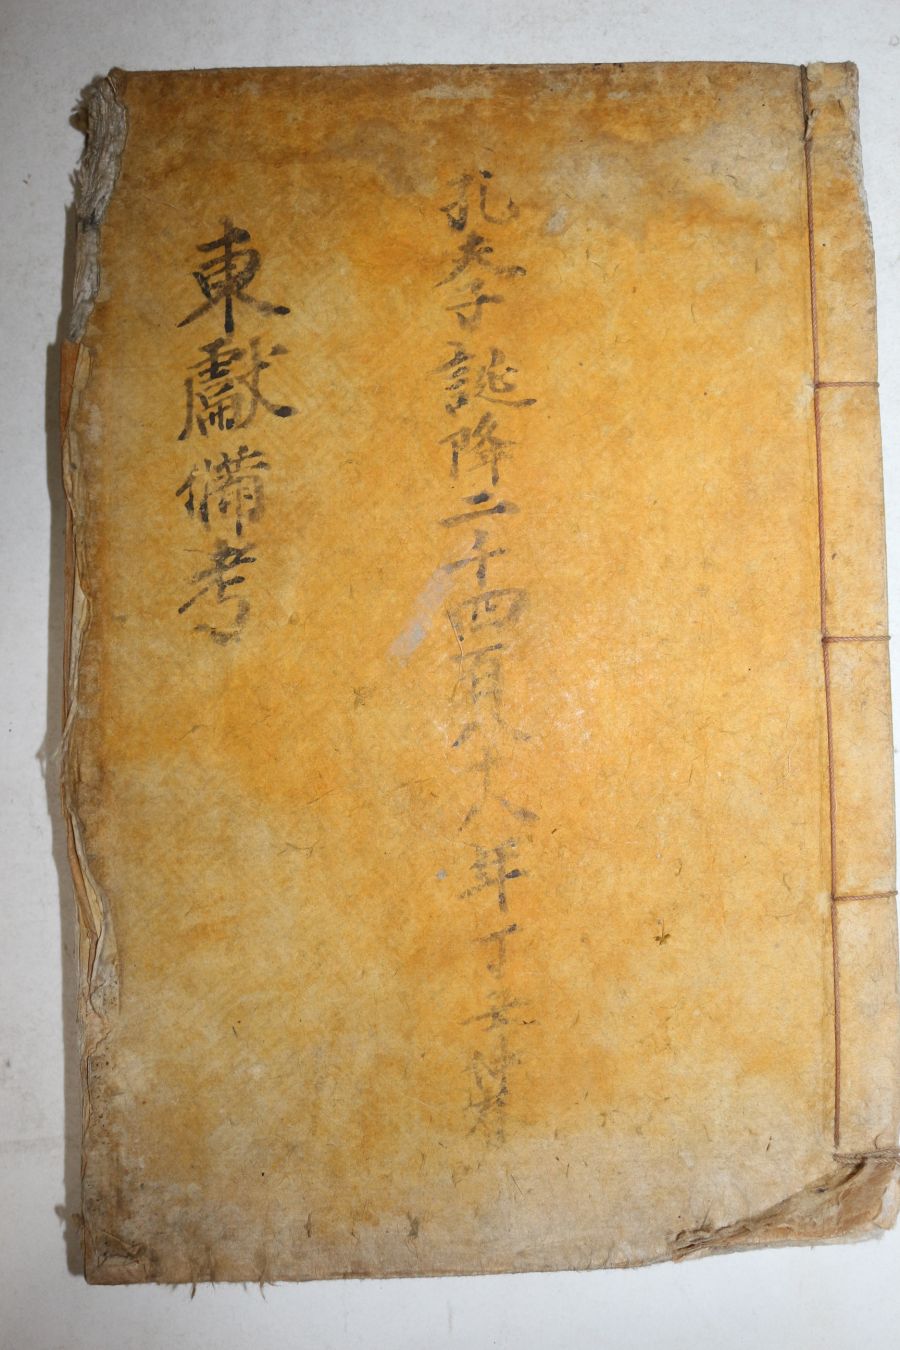 孔夫子誕降二千四百八十八年丁丑仲春
東獻備考